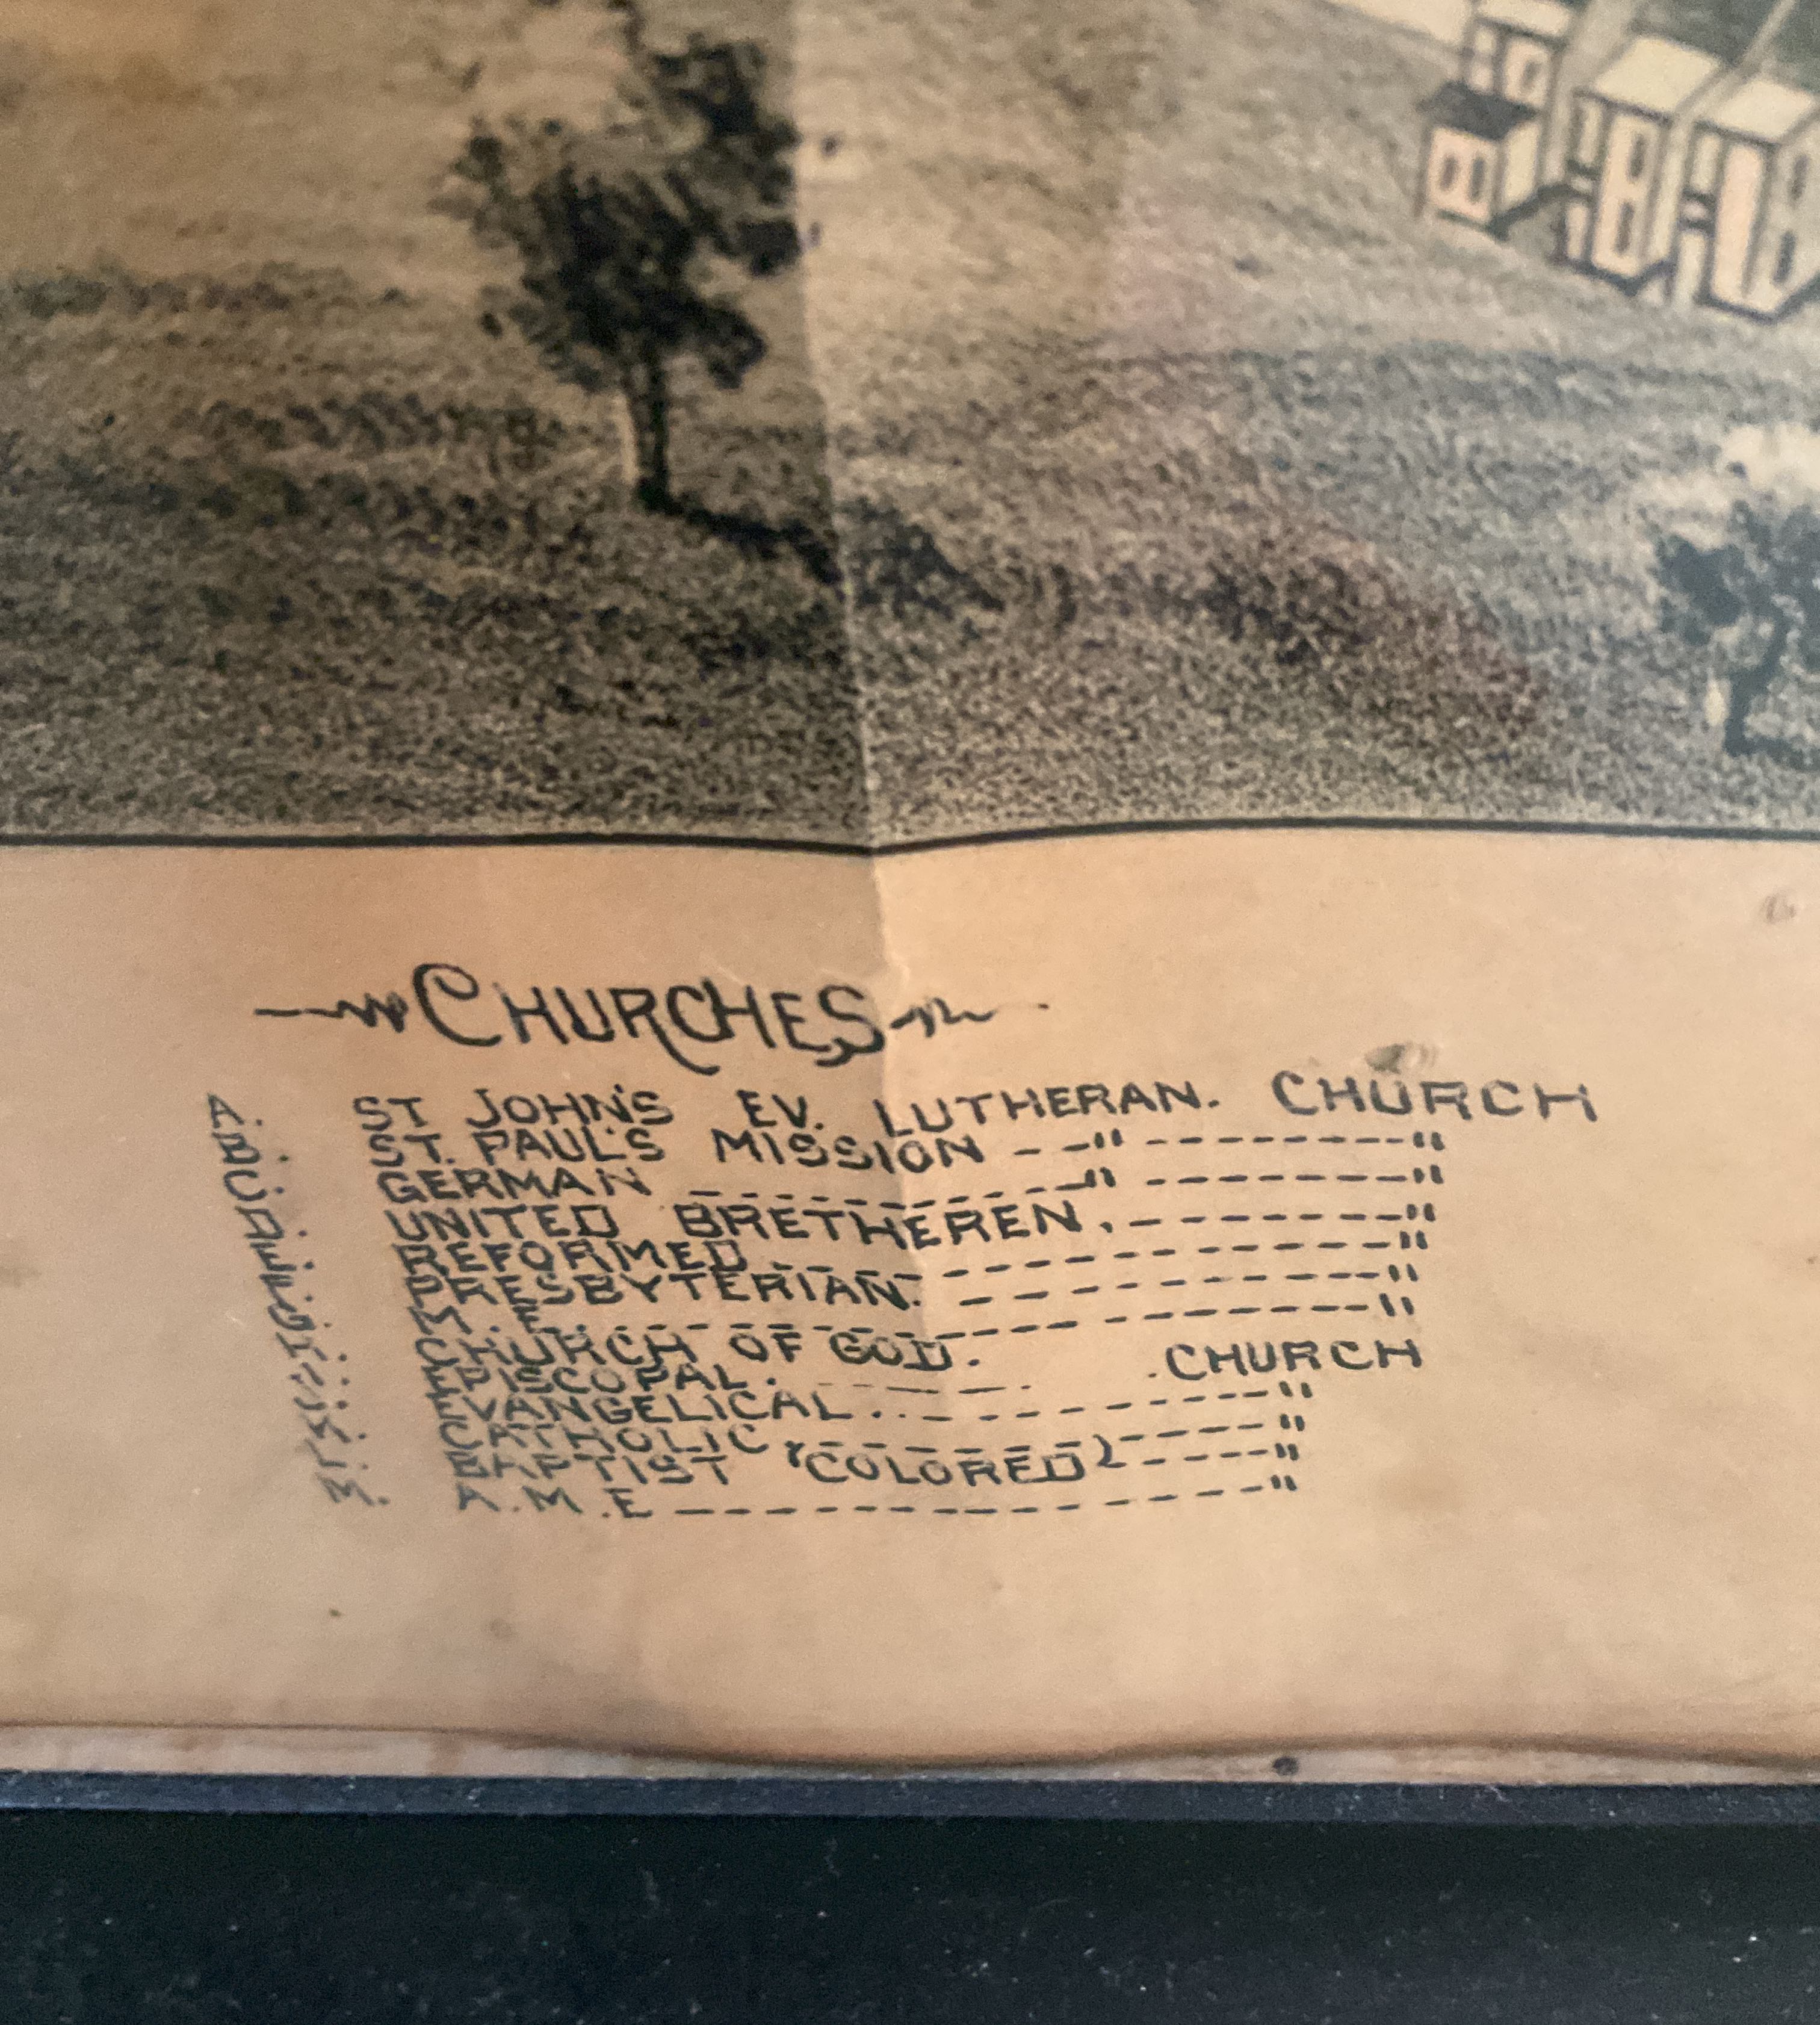 CHURCHES
A. ST JOHN'S EV. LUTHERAN. CHURCH
B. ST. PAUL'S MISSION -- " -------- "
C. GERMAN ------------ " -------- "
D. UNITED BRETHEREN. -------- "
E. REFORMED ---------------- "
F. PRESBYTERIAN. ---------- "
G. M. E. ---------------- "
H. CHURCH OF GOD.
I. EPISCOPAL. ------ CHURCH
J. EVANGELICAL ---------- "
K. CATHOLIC, ------------ "
L. BAPTIST (COLORED) ------ "
M. A.M.E ---------------- "